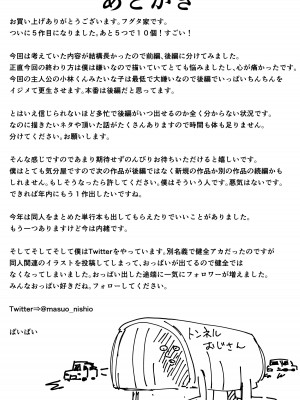 あとがき
お買い上げありがとうございます。フグタ家です。
ついに5作目になりました。あと5つで10個！すごい！
今回は考えていた内容が結構長かったので前編、後編に分けてみました。
正直今回の終わり方は僕は嫌いなので描いていてとても悩みましたし、心が痛かったです。
今回の主人公の小林くんみたいな子は最低で大嫌いなので後編でいっぱいちんちんを
イジメて更生させます。本番は後編だと思ってます。
とはいえ信じられないほど多忙で後編がいつ出せるのか全く分からない状況です。
なのに描きたいネタや頂いた話がたくさんありますので時間も体も足りません。
分けてください。お願いします。
そんな感じですのであまり期待せずのんびりお待ちいただけると嬉しいです。
僕はとても気分屋ですので次の作品が後編ではなく新規の作品か別の作品の続編かも
しれません。もしそうなったら許してください。僕はそういう人です。悪気はないです。
できれば年内にもう1作出したいですね。
今年は同人をまとめた単行本も出してもらえたりでいいことがありました。
もう一つありますけど今は内緒です。
そしてそしてそして僕はTwitterをやっています。別名義で健全アカだったのですが
同人関連のイラストを投稿してしまって、おっぱいが出てるので健全では
なくなってしまいました。おっぱい出した途端に一気にフォロワーが増えました。
みんなおっぱい好きだね。フォローしてください。
Twitter⇒@masuo_nishio
ばいばい
トンネル
おじさん